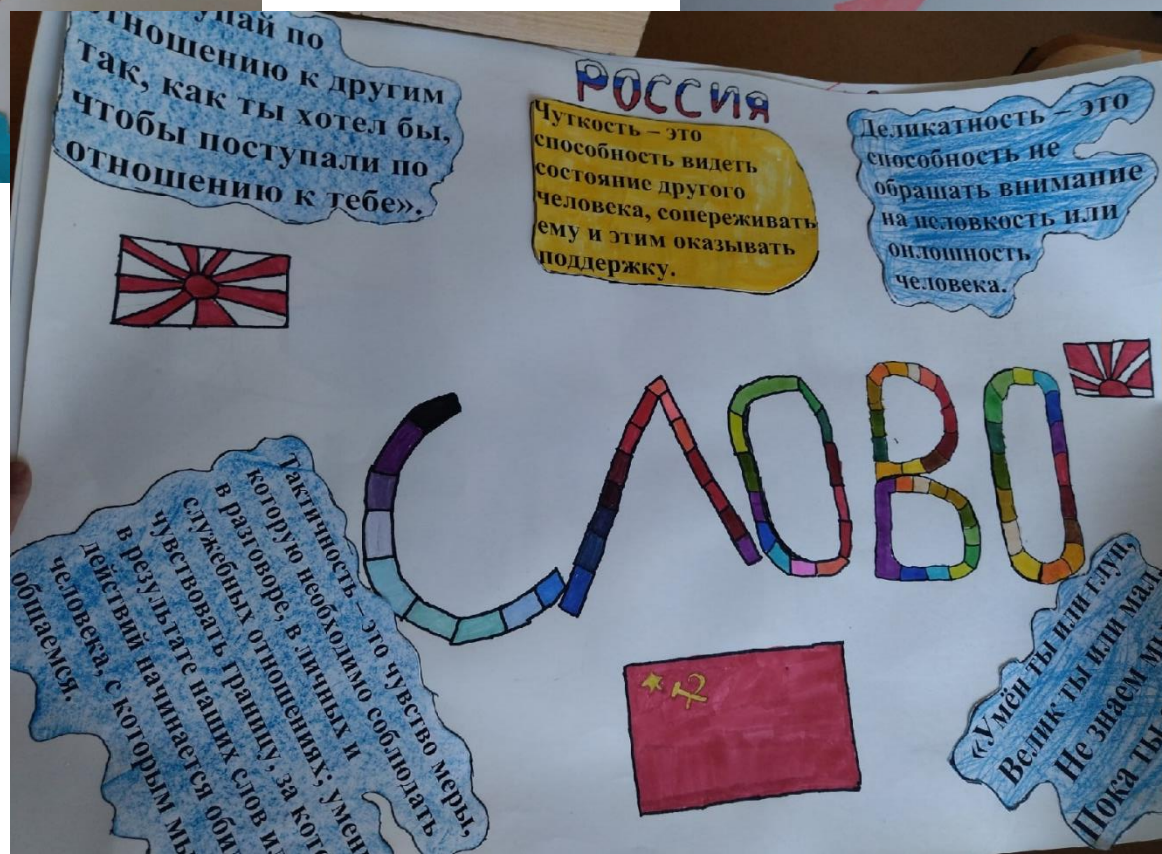 упай по
отношению к другим
так, как ты хотел бы,
чтобы поступали по
отношению к тебе».
РОССИЯ
Чуткость – это
способность видеть
состояние другого
человека, сопереживать
ему и этим оказывать
поддержку.
Деликатность – это
способность не
обращать внимание
на неловкость или
оплошность
человека.
СЛОВО
Тактичность – это чувство меры,
которую необходимо соблюдать
в разговоре, в личных и
служебных отношениях; умени
чувствовать границу, за кото
в результате наших слов и
действий начинается оби
человека, с которым мы
общаемся
«Умён ты или глуп,
Велик ты или мал
Не знаем м
Пока ты